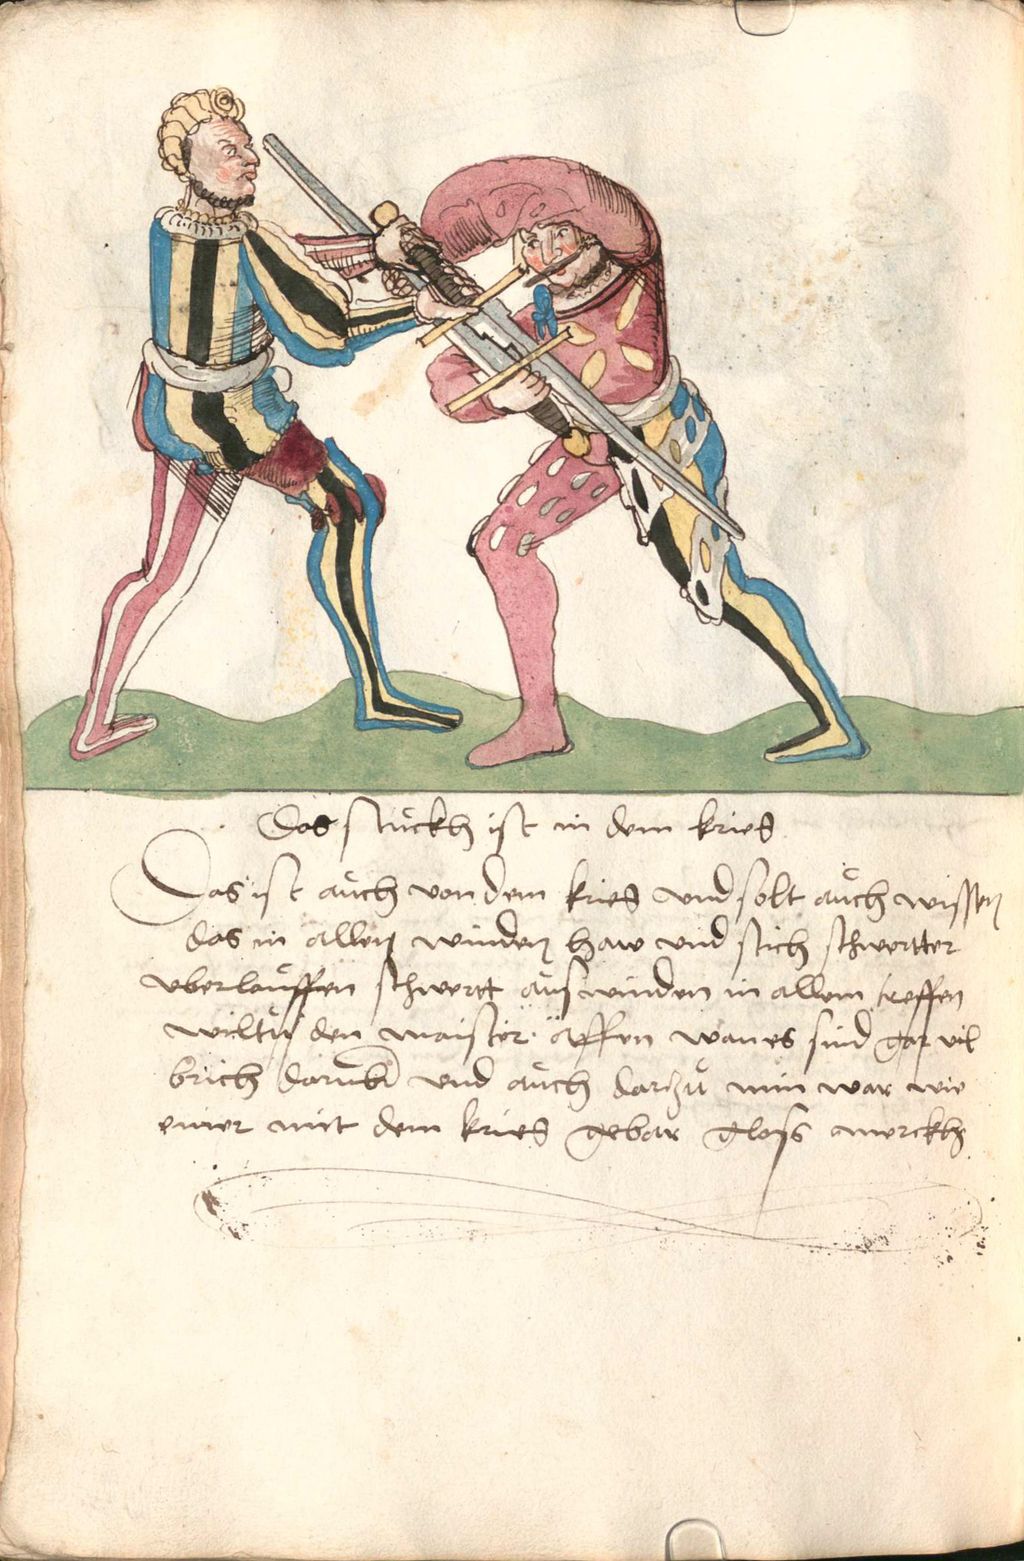 Das stuckh ist in dem kries
Das ist auch von dem kries vnd solt auch wissen
das in allen winden haw vnd stich schwertter
vberlauffen schwertt auswinden in allem treffen
wiltu den maister äffen wan es sind gar vil
brich darumb vnd auch darzu nim war wie
einer mit dem kries gebar gloss merckh